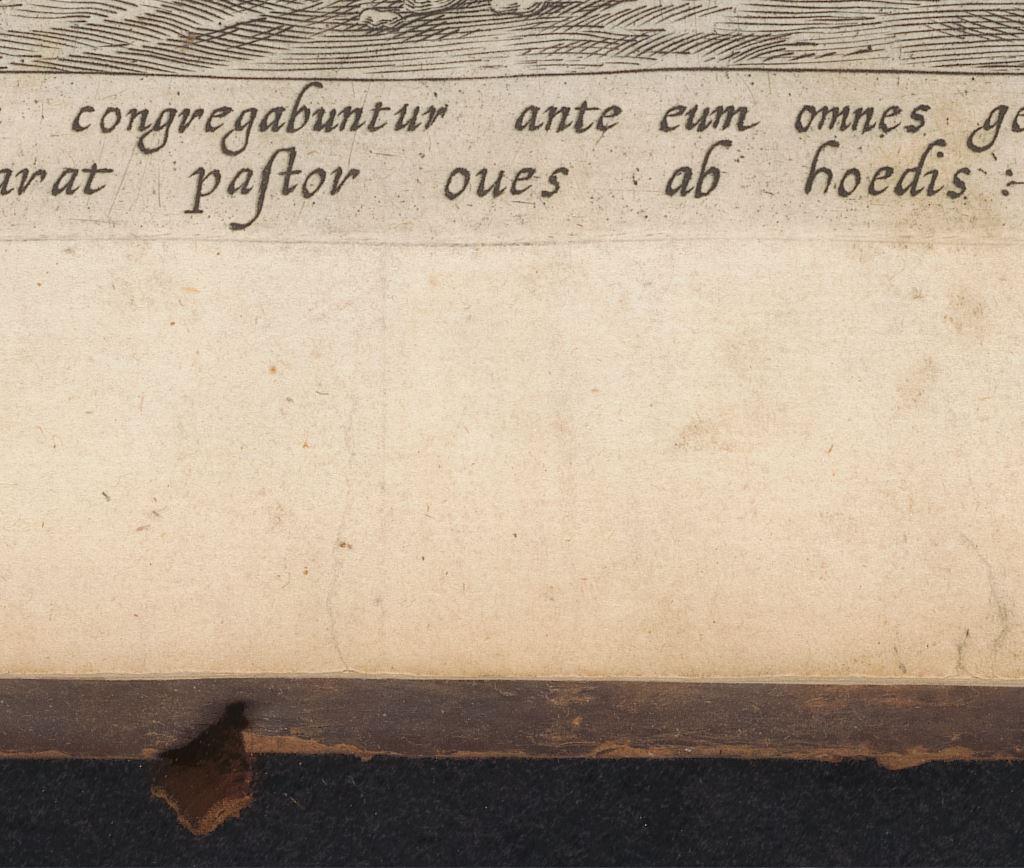 congregabuntur ante eum omnes ge
arat paſtor oues ab hoedis :-